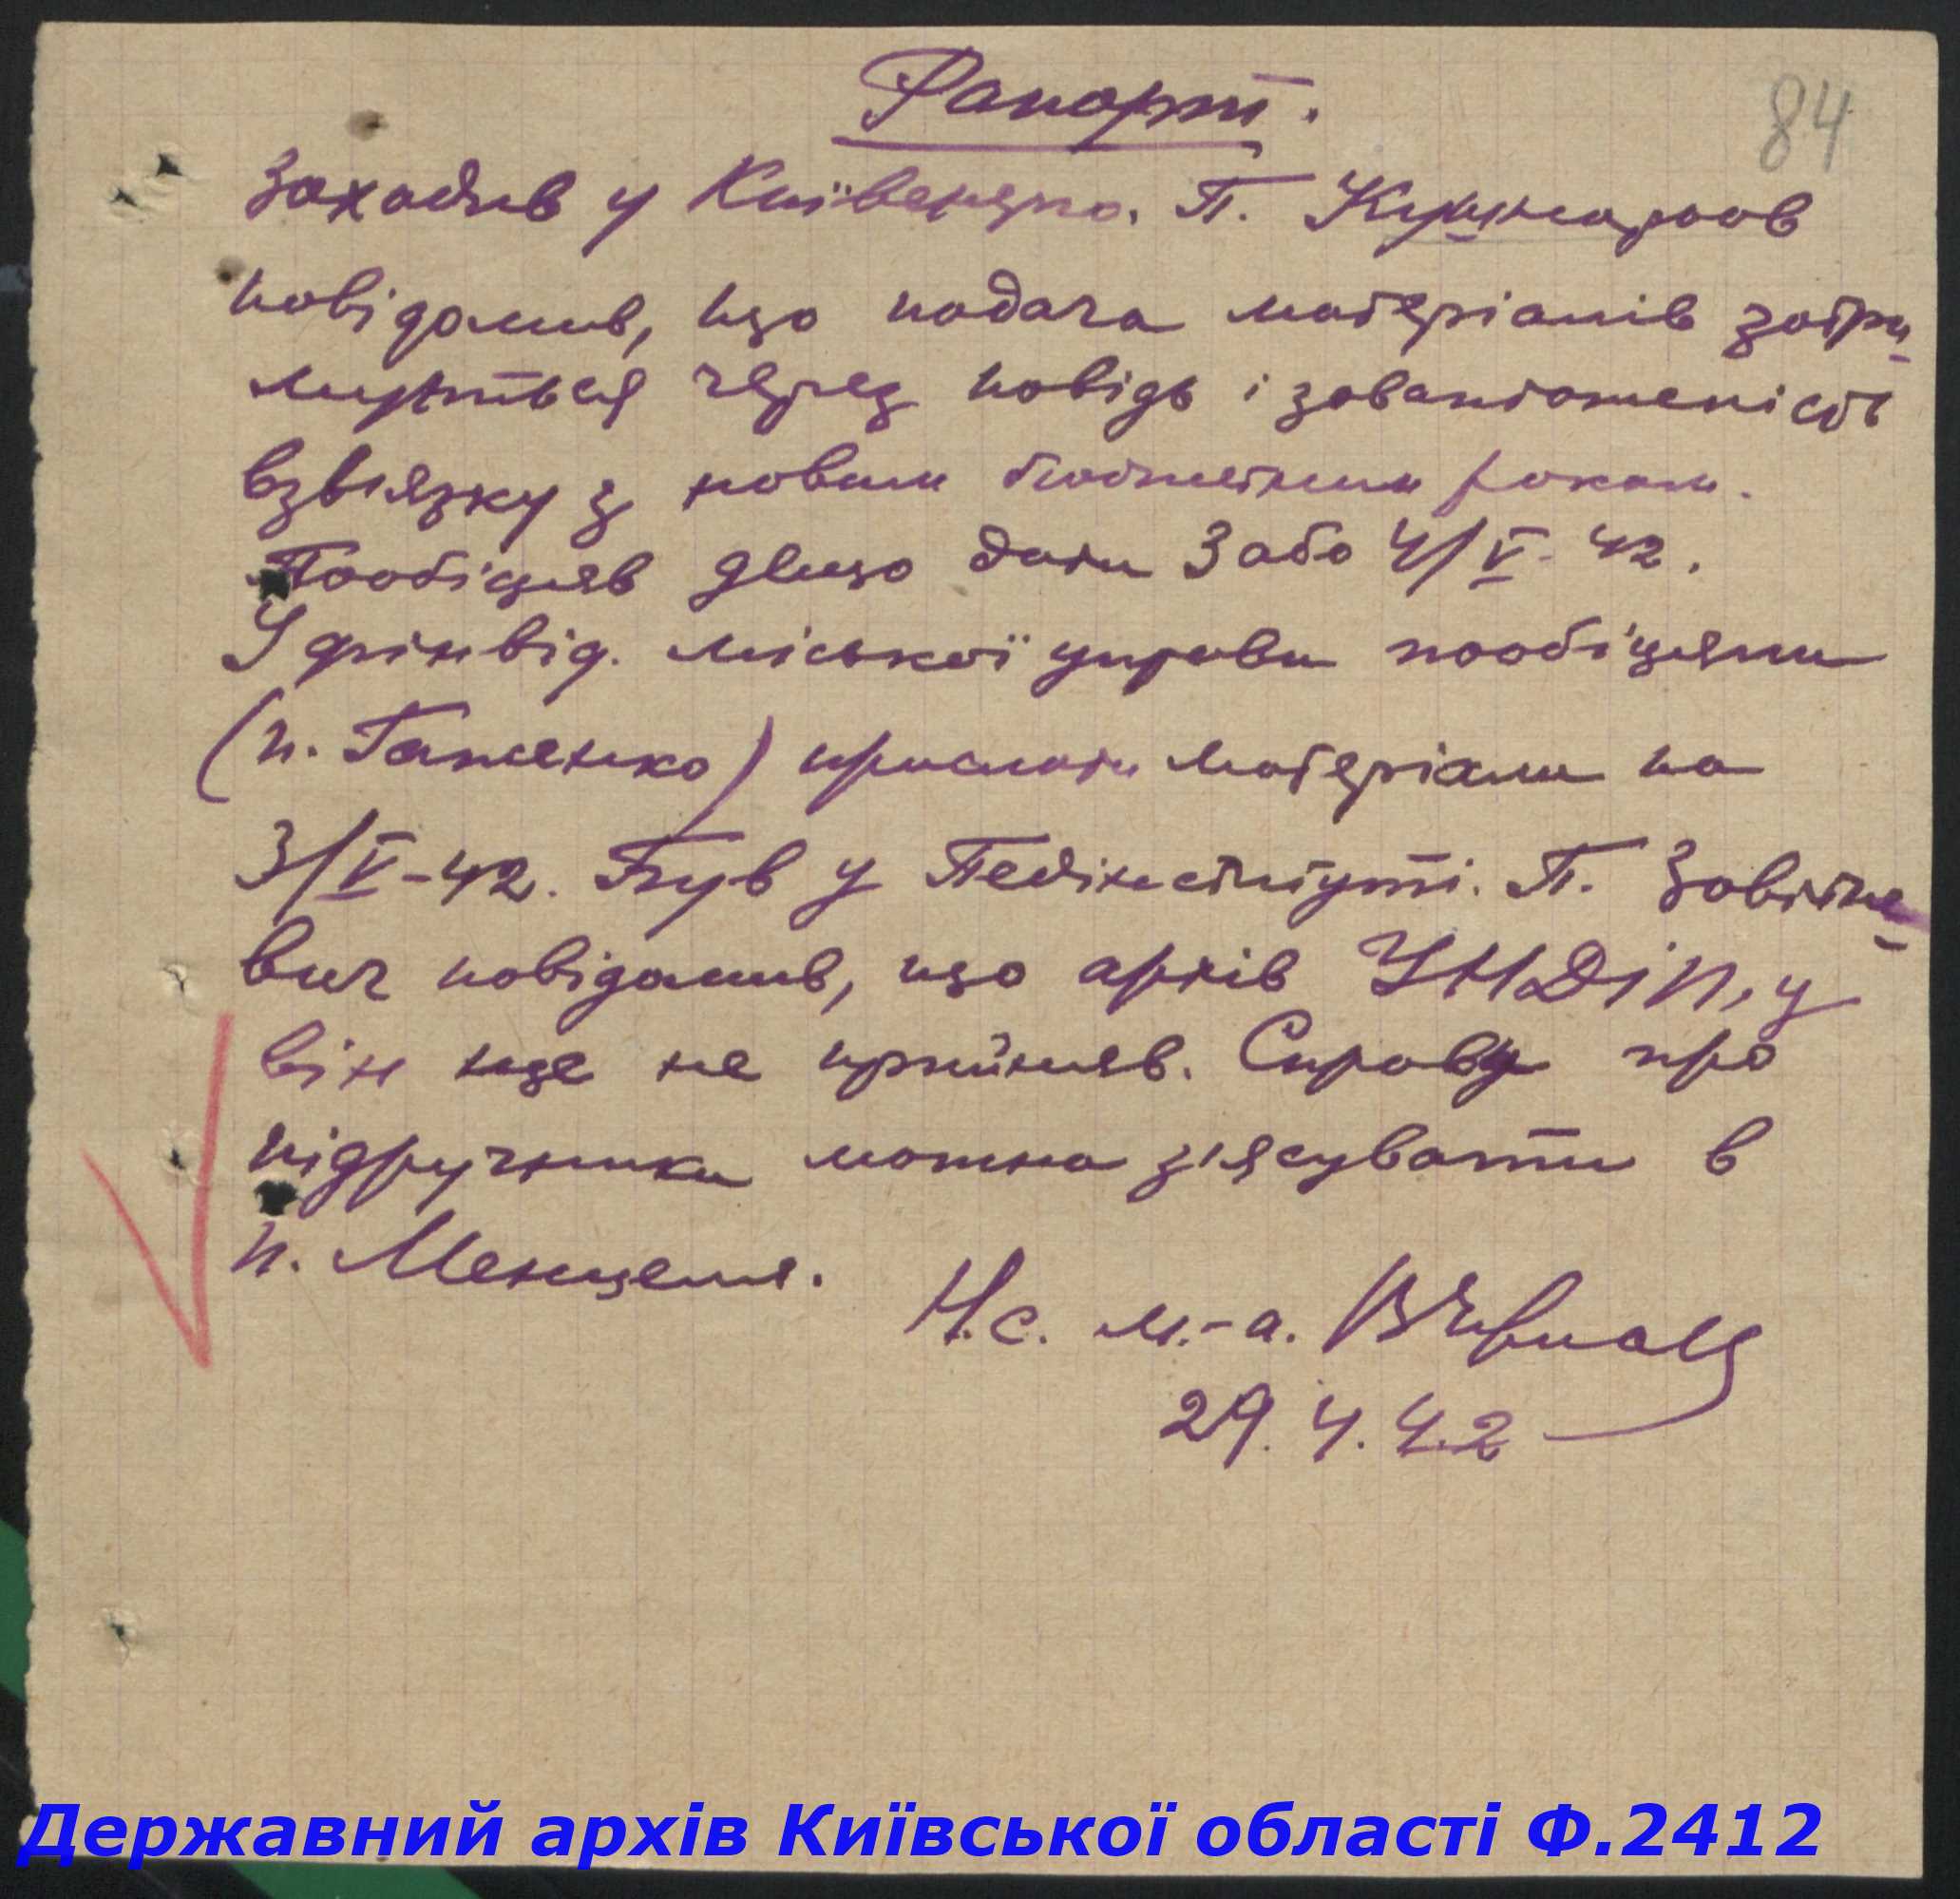 Рапорт.
84
Заходив у Київенерго. П.
повідомив, що подача матеріалів затри-
муються через повідь і завантаженість
взв'язку з новим бюджетним роком.
Пообіцяв дещо дати 3 або 4/V- 42.
У фінвід. міської управи пообіцяли
(п. Ганженко) прислати матеріали на
3/V-42. Був у Педінституті. П.
вич повідомив, що архів УНДІП,у
він ще не прийняв. Справу про
підручники можна з'ясувати в
п.
Н.с. м.-а.
29. 4. 42
Державний архів Київської області Ф.2412